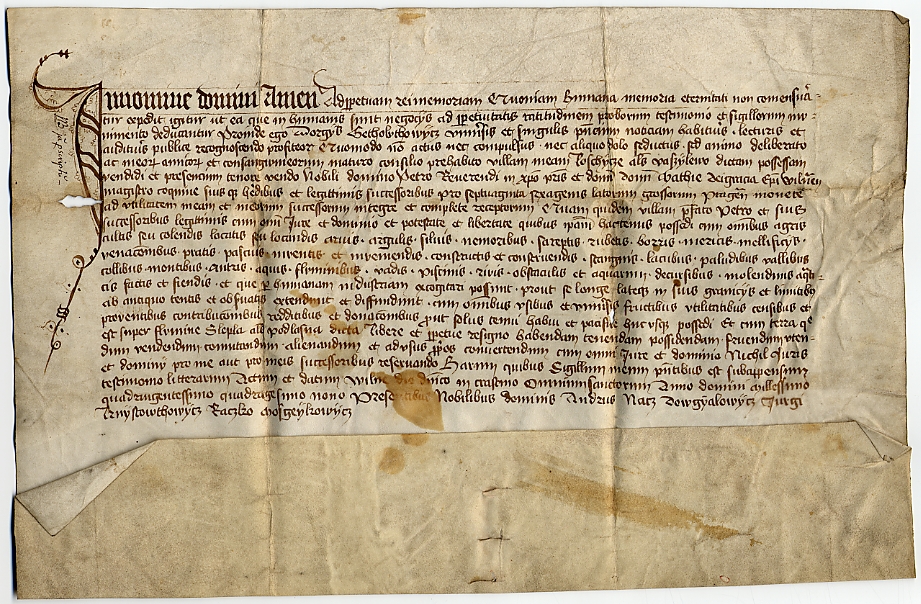 In nomine domini Amen Ad ppetuam rei memoriam Quoniam humana memoria eternitati non comensura
tur expedit igitur ut ea que in humanis fiunt negocijs ad ppetuitatis ratitudinem proborum testimonio et sigillorum mu-
nimento deducantur Proinde ego Georgys vniusis et singulis pncium noticiam habituris lecturis et
audituris publice recognoscendo profiteor Quomodo no actus nec compulsus nec aliquo dolo seductus sed animo deliberato
ac meor amicor et consangwineorum maturo consilio prehabito villam meam loschycze als vasylewo dictam possessam
vendidi et presencium tenore vendo Nobili domino Petro Reverendi in xpo pris et domi domi Mathie dei gracia Epi Wilnen
magistro coquine suisq hedibus et legittimis successoribus pro septuaginta sexagenis latorum grossorum pragen monete
ad utilitatem meam et meorum successorum integre et complete receptorum Quam quidem villam pfato Petro et suis
successoribus legitimis cum omi Jure et dominio et potestate et libertate quibus ipam hactenus possedi cum omnibus agris
cultis seu colendis locatis seu locandis aruis argulis siluis nemoribus rubetis borris mericis mellificys
venacionibus pratis pascuis inventis et inveniendis constructis et construendis stangnis lacubus paludibus vallibus
collibus montibus antris aquis fluminibus vadis piscinis rivis obstaculis et aquarum decursibus molendinis
cis factis et fiendis et que p humanam industriam excogitari possunt prout se longe lateq in suis granicys et limitibus
ab antiquo tentis et obsuatis extendunt et diffundunt cum omnibus usibus et vniusis fructibus utilitatibus censibus et
proventibus contribucionibus redditibus et donacionibus put solus tenui habui et pacifice hucusq possedi Et cum terra que
est super flumine Slepla als podlasna dicta libere et ppetue resigno habendam tenendam possidendam fruendum uten-
dum vendendum comutandum alienandum et ad usus ppos convertendum cum omni Jure et dominio Nichil Juris
et dominy pro me aut pro meis successoribus reservando Harum quibus Sigillum meum pntibus est subappensum
testimonio litterarum Actum et datum Wilne die dnico in crastino Omnium sanctorum Anno domini millesimo
quadringentesimo quadragesimo nono Presentibus Nobilibus dominis Andrus Nacz Dowgyalowycz Jurgi
Raczko